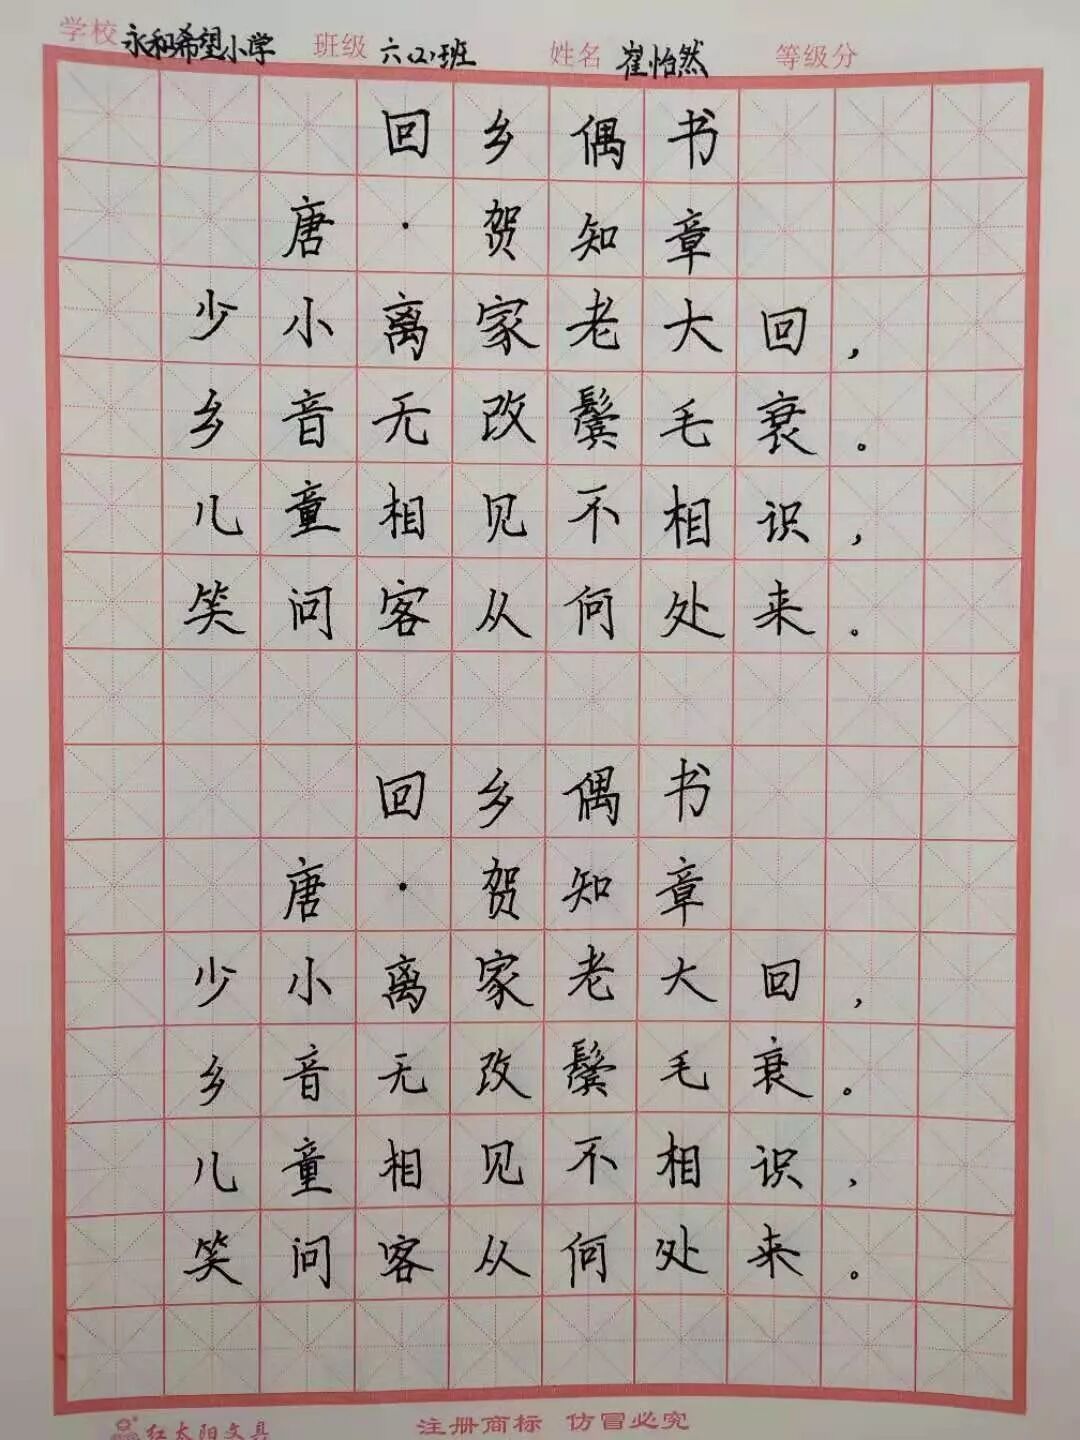 学校 永和希望小学 班级 六(2)班 姓名 崔怡然 等级分
回乡偶书
唐·贺知章
少小离家老大回，
乡音无改鬓毛衰。
儿童相见不相识，
笑问客从何处来。
回乡偶书
唐·贺知章
少小离家老大回，
乡音无改鬓毛衰。
儿童相见不相识，
笑问客从何处来。
红太阳文具 注册商标 仿冒必究